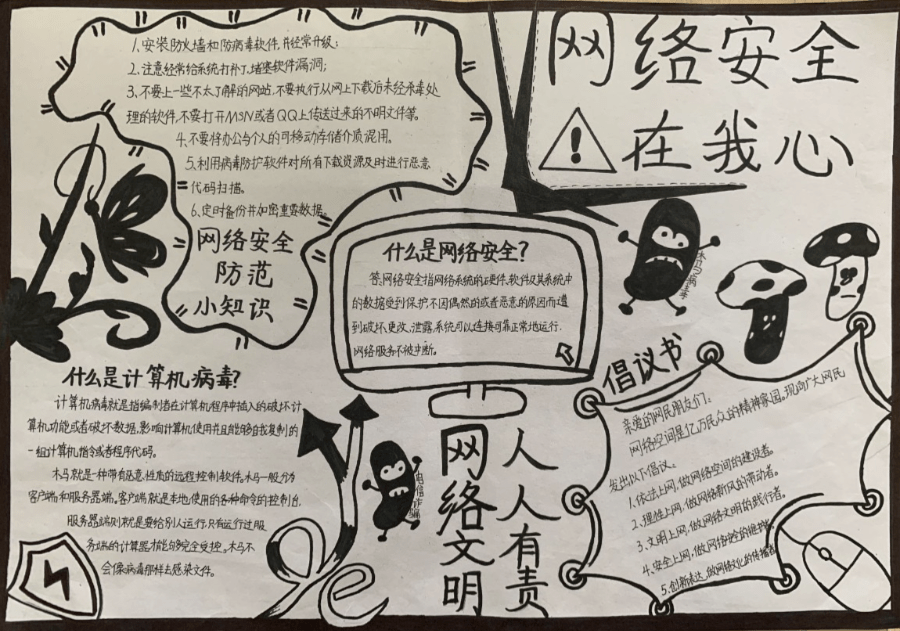 网络安全
在我心
1、安装防火墙和防病毒软件,并经常升级;
2、注意经常给系统打补丁,堵塞软件漏洞;
3、不要上一些不太了解的网站,不要执行从网上下载后未经杀毒处
理的软件,不要打开MSN或者QQ上传送过来的不明文件等。
4、不要将办公与个人的可移动存储介质混用。
5、利用病毒防护软件对所有下载资源及时进行恶意
代码扫描。
6、定时备份并加密重要数据。
网络安全
防范
小知识
什么是网络安全?
答:网络安全指网络系统的硬件,软件及其系统中
的数据受到保护不因偶然的或者恶意的原因而遭
到破坏、更改、泄露,系统可以连接可靠正常地运行,
网络服务不被中断。
木马病毒
什么是计算机病毒?
计算机病毒就是指编制者在计算机程序中插入的破坏计
算机功能或者破坏数据,影响计算机使用并且能够自我复制的
一组计算机指令或者程序代码。
木马就是一种带有恶意性质的远程控制软件。木马一般分为
客户端和服务器端。客户端就是本地使用的各种命令的控制台,
服务器端则就是要给别人运行,只有运行过服
务端的计算器才能够完全受控。木马不
会像病毒那样去感染文件。
电信诈骗
网络文明
人人有责
倡议书
亲爱的网民朋友们:
网络空间是亿万民众的精神家园。现向广大网民
发出以下倡议:
1、依法上网,做网络空间的建设者。
2、理性上网,做网络新风的带动者。
3、文明上网,做网络文明的践行者。
4、安全上网,做网络安全的维护者。
5、创新表达,做网络文化的传播者